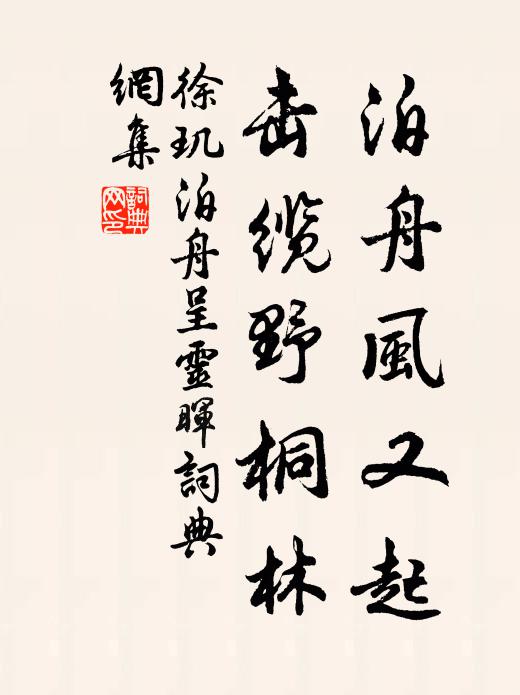 泊舟風又起
击缆野桐林
徐玑泊舟呈靈暉詞典
網集
詞典
网印